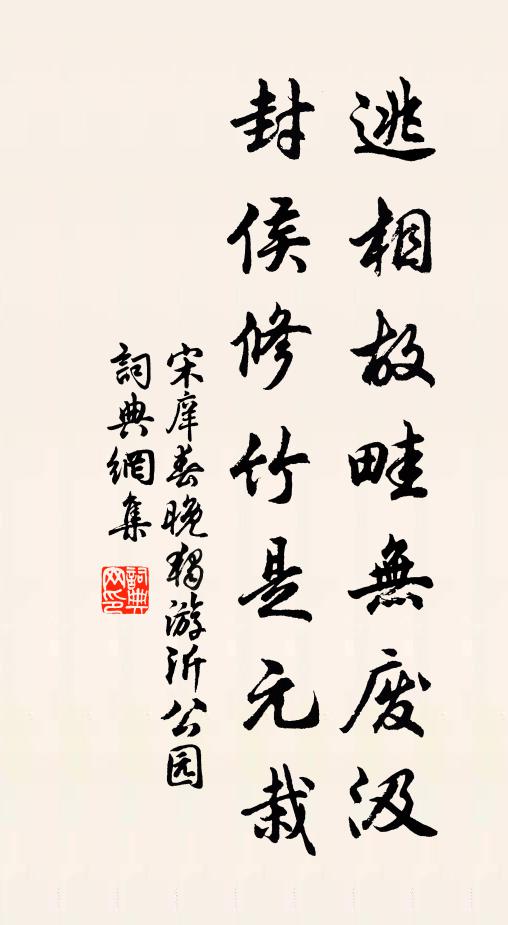 逃相故畦無废汲
封侯修竹是元栽
宋庠春晚独游沂公园
詞典網集
詞典
网印